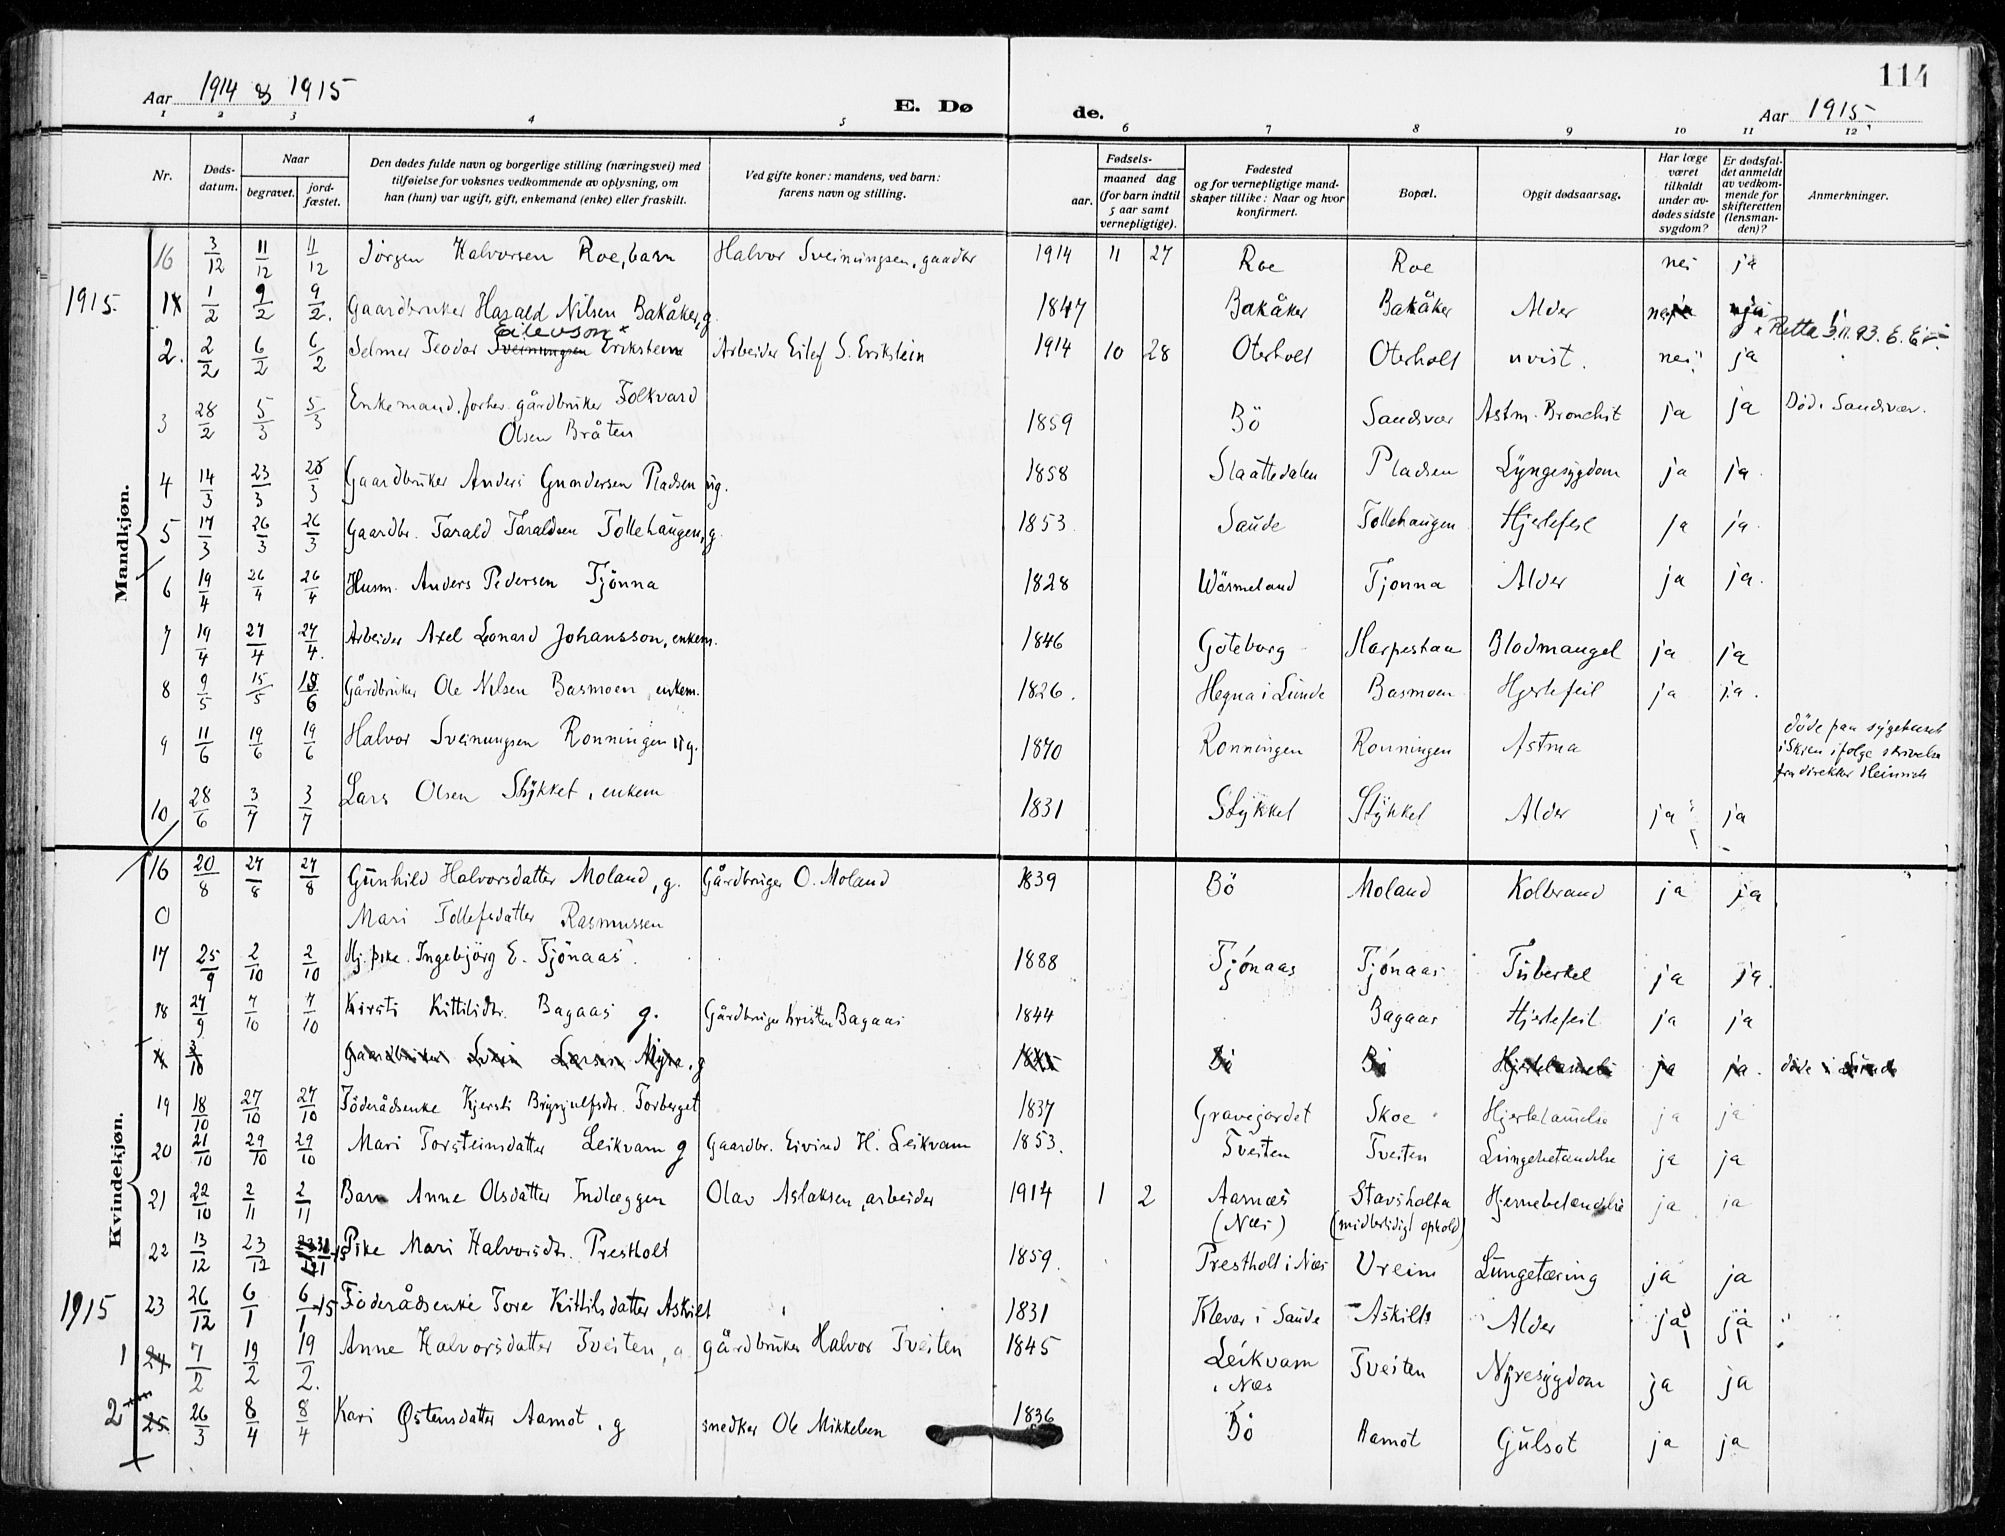 114
Aar 1914 & 1915 E. Dø de. Aar 1915
1 2 3 4 5 6 7 8 9 10 11 12
Nr. Døds-datum. Naar begravet. jord-fæstet. Den dødes fulde navn og borgerlige stilling (næringsvei) med tilføielse for voksnes vedkommende av oplysning, om han (hun) var ugift, gift, enkemand (enke) eller fraskilt. Ved gifte koner: mandens, ved barn: farens navn og stilling. Fødsels- aar. maaned dag (for barn indtil 5 aar samt vernepligtige). Fødested og for vernepligtige mandskaper tillike: Naar og hvor konfirmert. Bopæl. Opgit dødsaarsag. Har læge været tilkaldt under avdødes sidste sygdom? Er dødsfaldet anmeldt av vedkommende for skifteretten (lensmanden)? Anmerkninger.
Mandkjøn.
16 3/12 11/12 11/12 Jørgen Halvorsen Roe, barn Halvor Sveinungsen, gaardbr 1914 11 27 Roe Roe nei ja
1915. 1 1/2 9/2 9/2. Gaardbruker Harald Nilsen Bakåker, g. 1847 Bakåker Bakåker Alder
Eilevson x
2. 2/2 6/2 6/2 Selmer Teodor Sveinungsen Erikstein Arbeider Eilef S. Erikstein 1914 10 28 Oterholt Oterholt uvist. nei ja
3 28/2 5/3 5/3 Enkemand, forher. gårdbruker Folkvard Olsen Bråten 1859 Bö Sandsvær Astm. Bronchit ja ja Död i Sandsvær.
4 14/3 23/3 23/3 Gaardbruker Anders Gundersen Pladsen ug. 1858 Slaattedalen Pladsen Lyngesygdom ja ja.
5 17/3 26/3 26/3 Gaardbr. Tarald Taraldsen Tollehaugen, g. 1853. Saude Tollehaugen Hjertefeil ja ja.
6 19/4 26/4 26/4 Husm. Anders Pedersen Tjönna 1828 Wärmeland Tjonna Alder ja ja.
7 19/4 27/4 27/4. Arbeider Axel Leonard Johansson, enkem. 1846 Göteborg Harpestaa Blodmangel ja ja
8 9/5 15/5 Gårdbruker Ole Nilsen Basmoen, enkem. 1826. Hegna i Lunde Basmoen Hjertefeil ja ja.
9 11/6 19/6 19/6 Halvor Sveinungsen Ronningen ug. 1870 Ronningen Ronningen Astma döde paa sygehuset i Skien ifölge skrivelse fra direktör Heinrich
10 28/6 3/7 3/7 Lars Olsen Stykket, enkem 1831 Stykket Stykket Alder ja ja
Kvindekjøn.
16 20/8 27/8 27/8 Gunhild Halvorsdatter Moland, g. Gårdbruger O. Moland 1839 Bö Moland Kolbrand ja ja
0 Mari Tollefsdatter Rasmussen
17 25/9 2/10 2/10 Hj. pike. Ingebjörg E. Tjönaas. 1888 Tjönaas Tjönaas Tuberkel ja ja.
18 27/9 7/10 7/10 Kirsti Kittilsdtr. Bagaas g. Gårdbruger Kristen Bagaas 1844 Bagaas Hjertefeil ja ja
3/10 Gaardbruker Svein Larsen Myra, g Bö Bö Hjertelamelse ja ja. döde i Lunde
19 18/10 27/10 27/10 Föderådsenke Kjersti Brynjulfsdtr. Torberget 1837 Gravejordet Skoe Hjertelamelse ja ja
20 21/10 29/10 29/10 Mari Torsteinsdatter Leikvam g Gaardbr. Eivind H. Leikvam 1853. Tveiten Tveiten Lungebetændelse ja ja
21 22/10 2/11 2/11 Barn Anne Olsdatter Indlæggen Olav Aslaksen, arbeider 1914 1 2 Aarnæs (Næs) Stavsholta (midlertidigt ophold) Hjernebetændelse ja ja
22 13/12 23/12 Pike Mari Halvorsdtr. Prestholt 1859. Prestholt i Næs Vreim Lungetæring ja ja
23 26/12 6/1 6/1 15 Föderådsenke Tore Kittilsdatter Askilt 1831 Klevar i Saude Askilts Alder ja ja
1915
1 24 7/2 19/2 19/2. Anne Halvorsdatter Tveiten, g gårdbruker Halvor Tveiten 1845 Leikvam i Næs Tveiten Nyresygdom ja ja
2 25. 26/3 8/4 8/4 Kari Østensdatter Aamot, g snedker Ole Mikkelsen 1836 Bö Aamot Gulsot ja ja